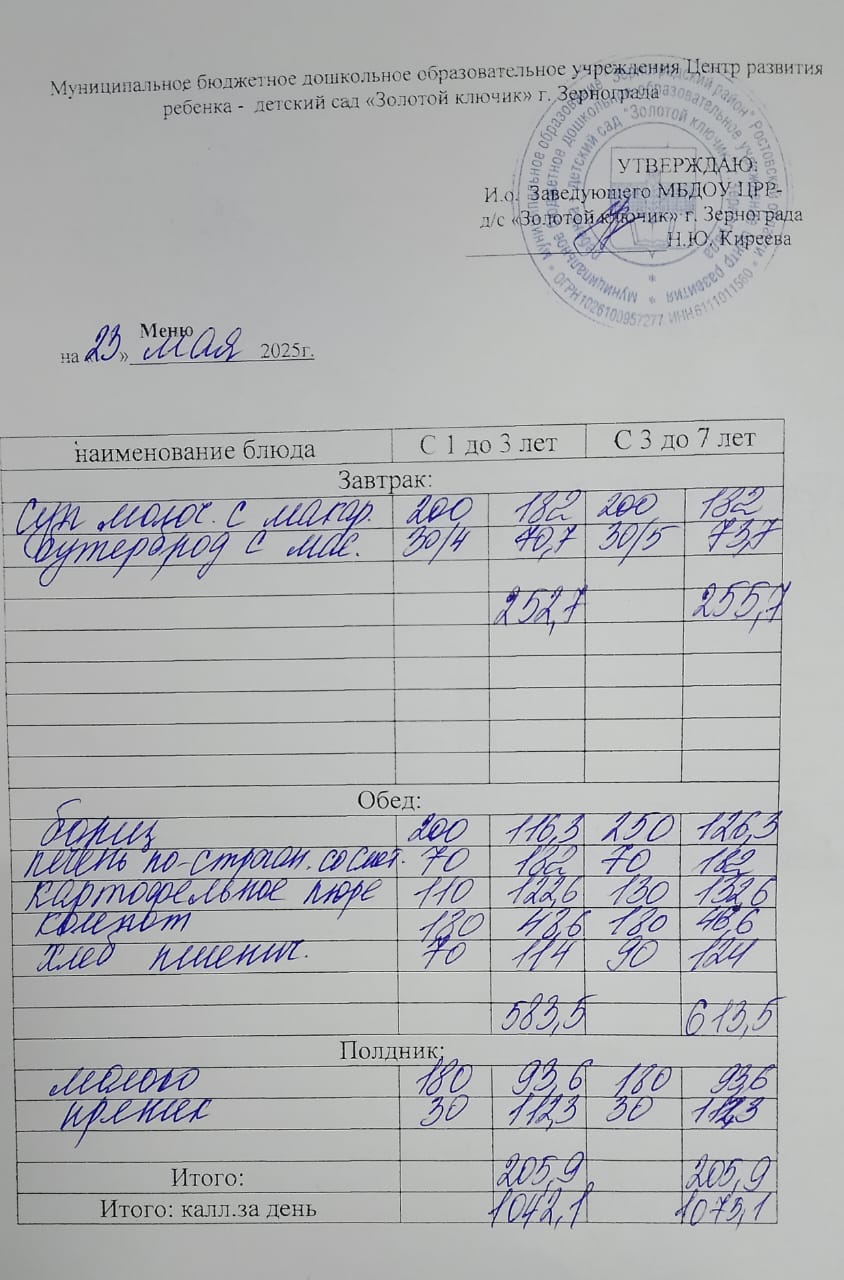 Муниципальное бюджетное дошкольное образовательное учреждения Центр развития
ребенка - детский сад «Золотой ключик» г. Зернограда
УТВЕРЖДАЮ:
И.о. Заведующего МБДОУ ЦРР-
д/с «Золотой ключик» г. Зернограда
Н.Ю. Киреева
ОГРН 1026100957277 ИНН 6111011560
Меню
на «23» мая 2025г.
наименование блюда С 1 до 3 лет С 3 до 7 лет
Завтрак:
суп молоч. с макар. 200 182 200 182
бутерброд с мас. 30/4 70,7 30/5 73,7
252,7 255,7
Обед:
борщ 200 116,3 250 126,3
печень по-строган. со смет. 70 182 70 182
картофельное пюре 110 122,6 130 132,6
компот 180 48,6 180 48,6
хлеб пшенич. 70 114 90 124
583,5 613,5
Полдник:
молоко 180 93,6 180 93,6
пряник 30 112,3 30 112,3
Итого: 205,9 205,9
Итого: калл.за день 1042,1 1075,1